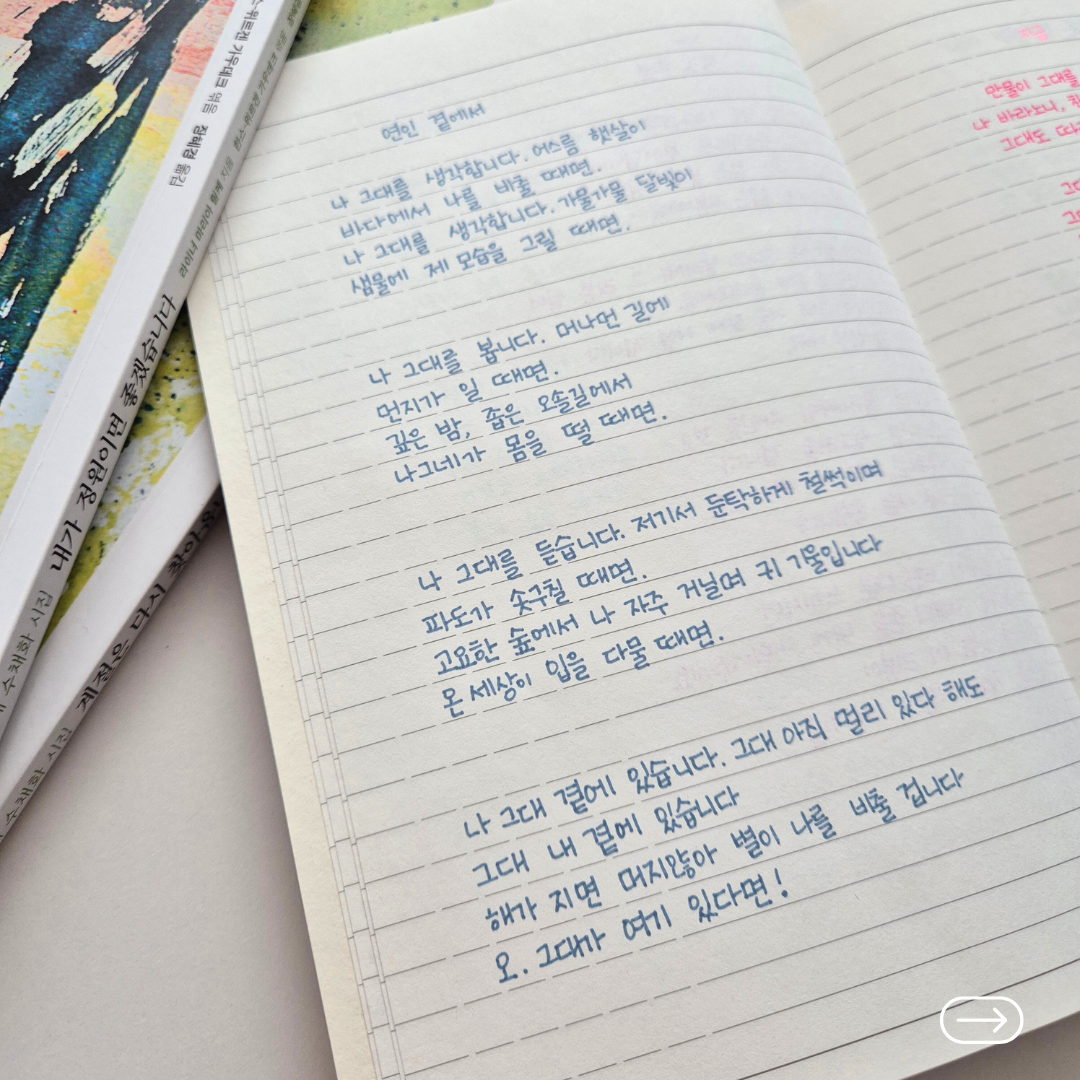 연인 곁에서
나 그대를 생각합니다. 어스름 햇살이
바다에서 나를 비출 때면.
나 그대를 생각합니다. 가물가물 달빛이
샘물에 제 모습을 그릴 때면.
나 그대를 봅니다. 머나먼 길에
먼지가 일 때면.
깊은 밤, 좁은 오솔길에서
나그네가 몸을 떨 때면.
나 그대를 듣습니다. 저기서 둔탁하게 철썩이며
파도가 솟구칠 때면.
고요한 숲에서 나 자주 거닐며 귀 기울입니다
온 세상이 입을 다물 때면.
나 그대 곁에 있습니다. 그대 아직 멀리 있다 해도
그대 내 곁에 있습니다
해가 지면 머지않아 별이 나를 비출 겁니다
오. 그대가 여기 있다면!
만물이 그대를
나 바라노니,
그대도
위르겐 가우데크 엮음 장혜경 옮김
수채화 시집 내가 정원이면 좋겠습니다 라이너 마리아 릴케 지음 한스 위르겐 가우데크 엮음
수채화 시집 계절은 다시